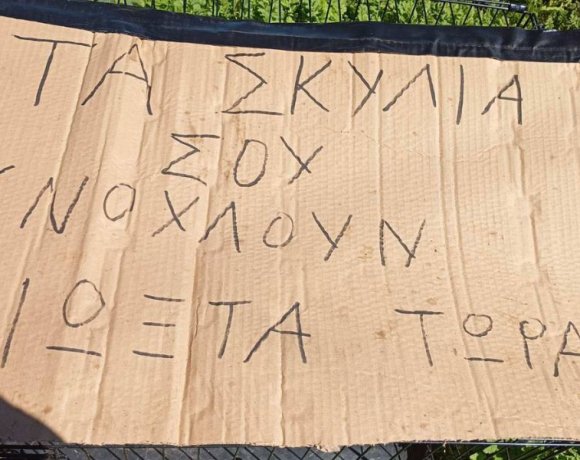 ΤΑ ΣΚΥΛΙΑ
ΣΟΥ
ΝΟΧΛΟΥΝ
ΙΩΞΤΑ ΤΩΡΑ